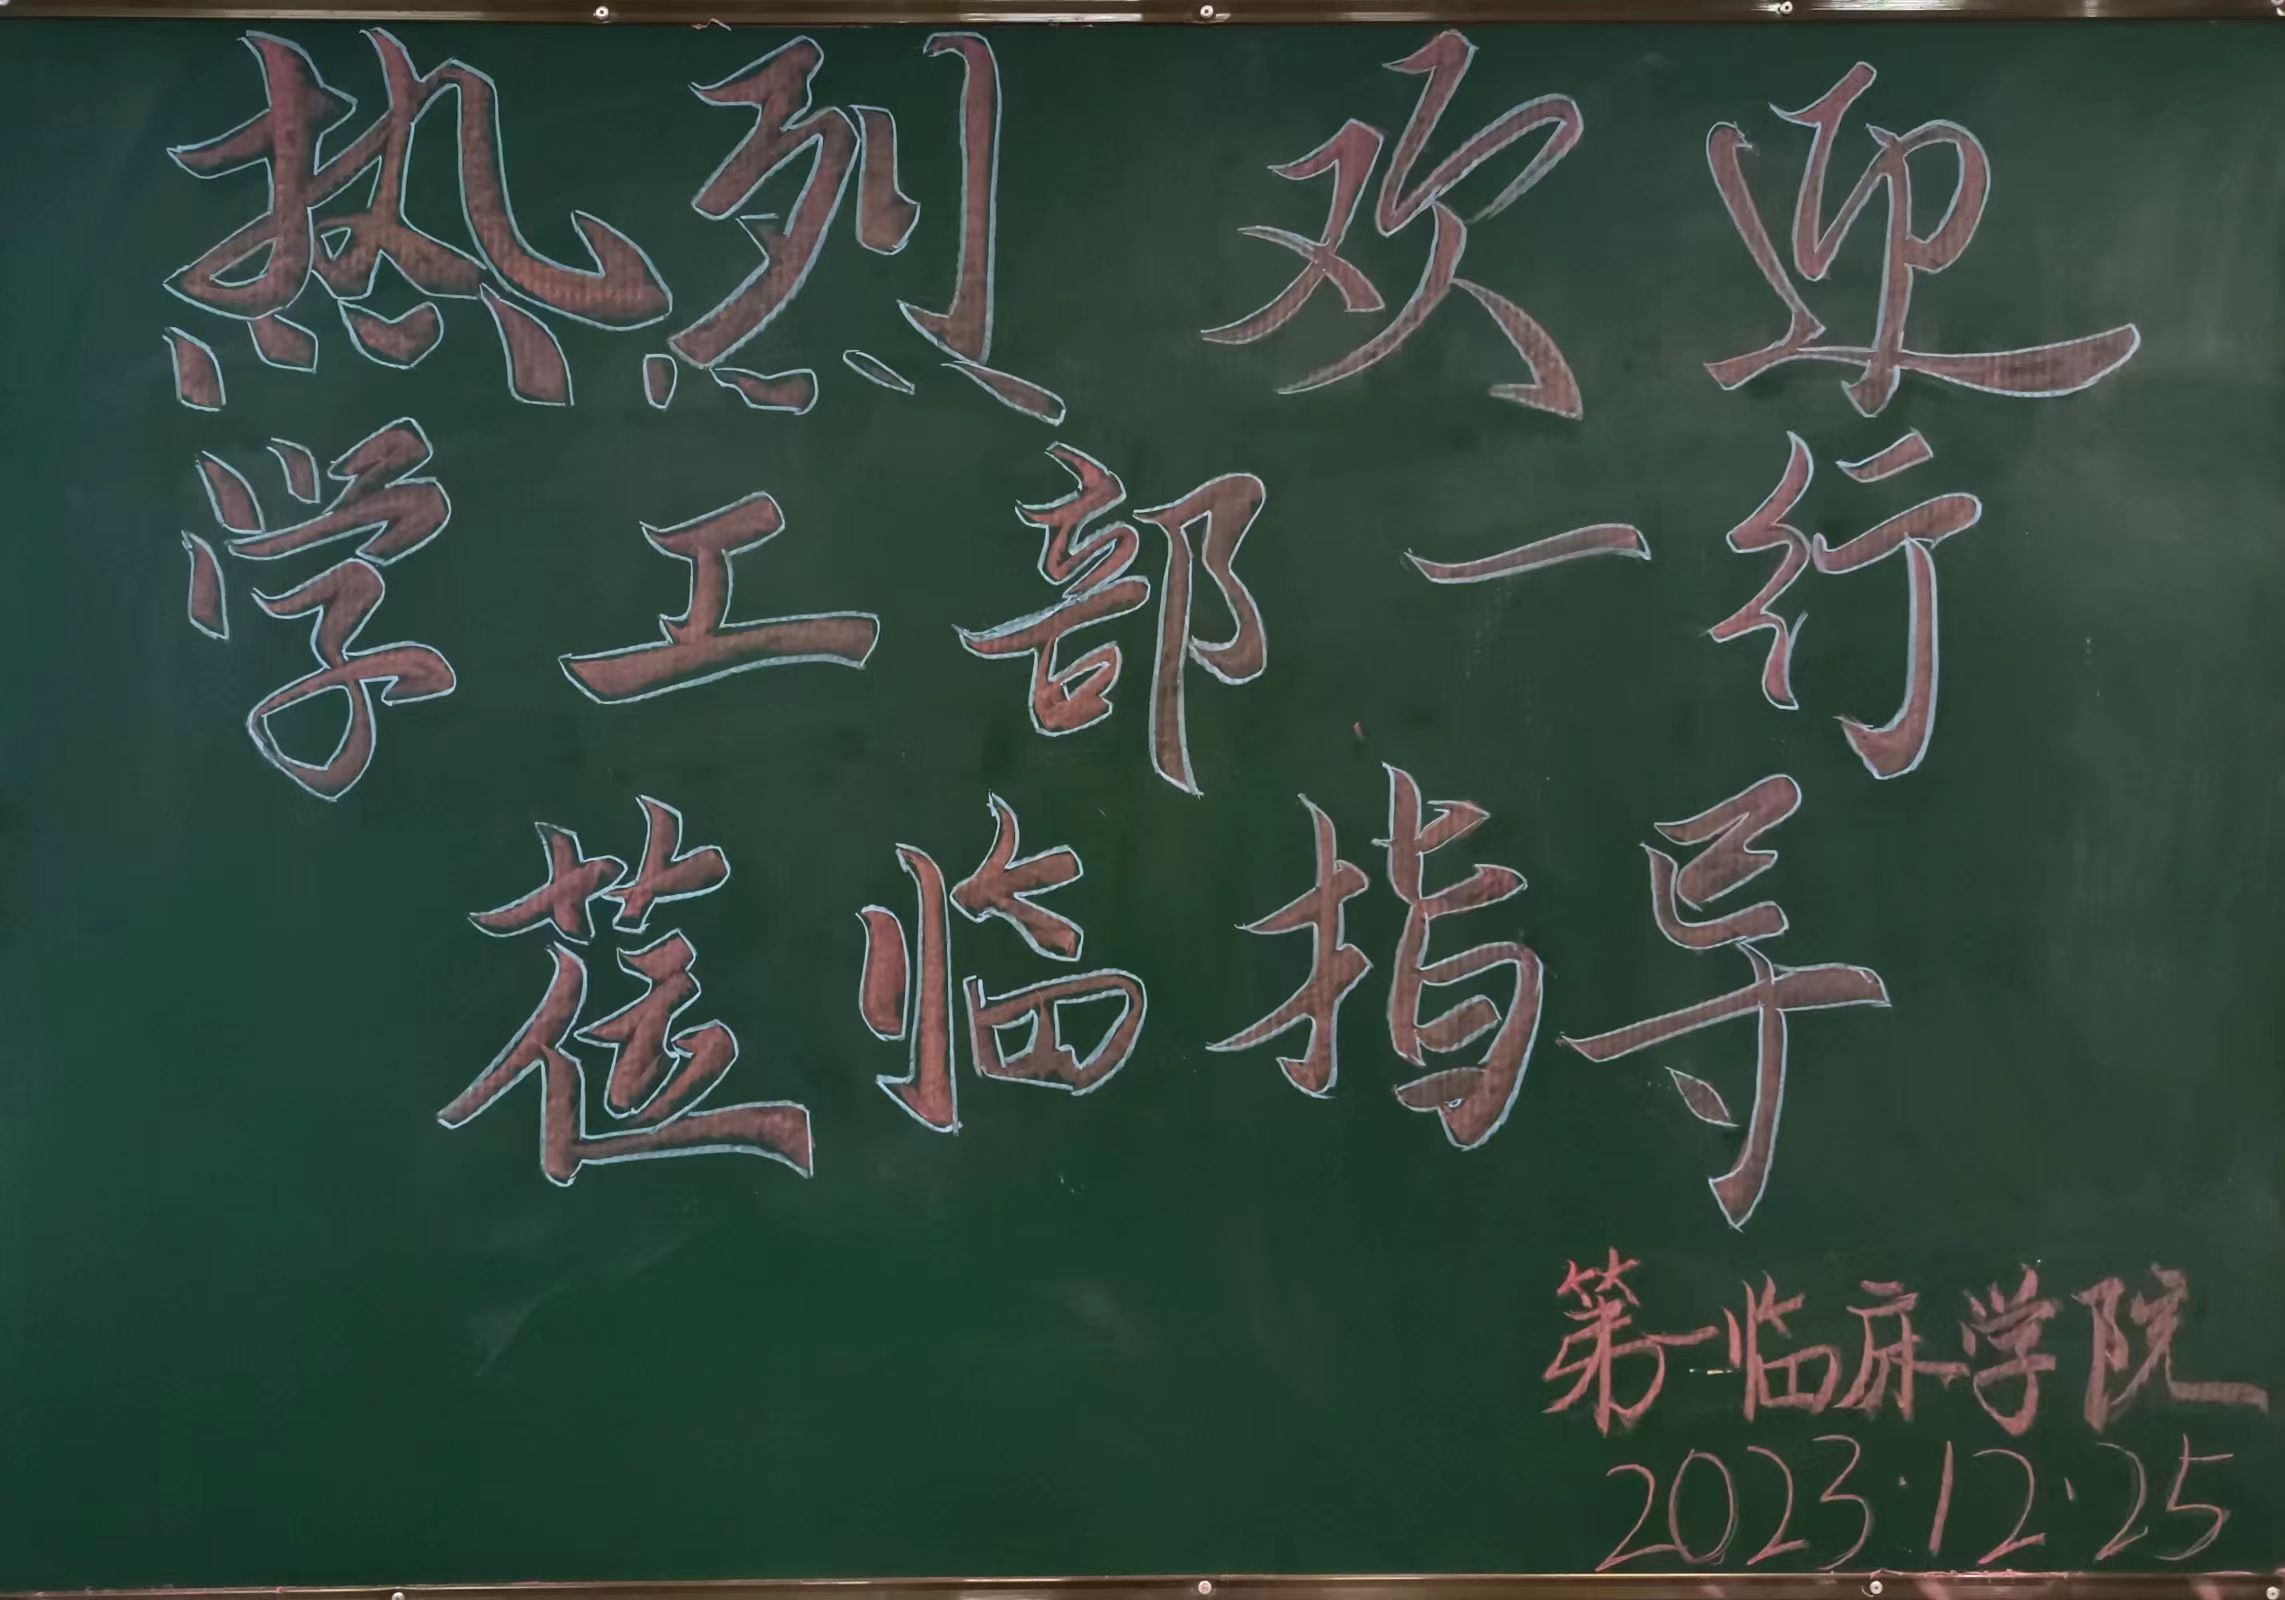 热烈欢迎
学工部一行
莅临指导
第一临床学院
2023·12·25